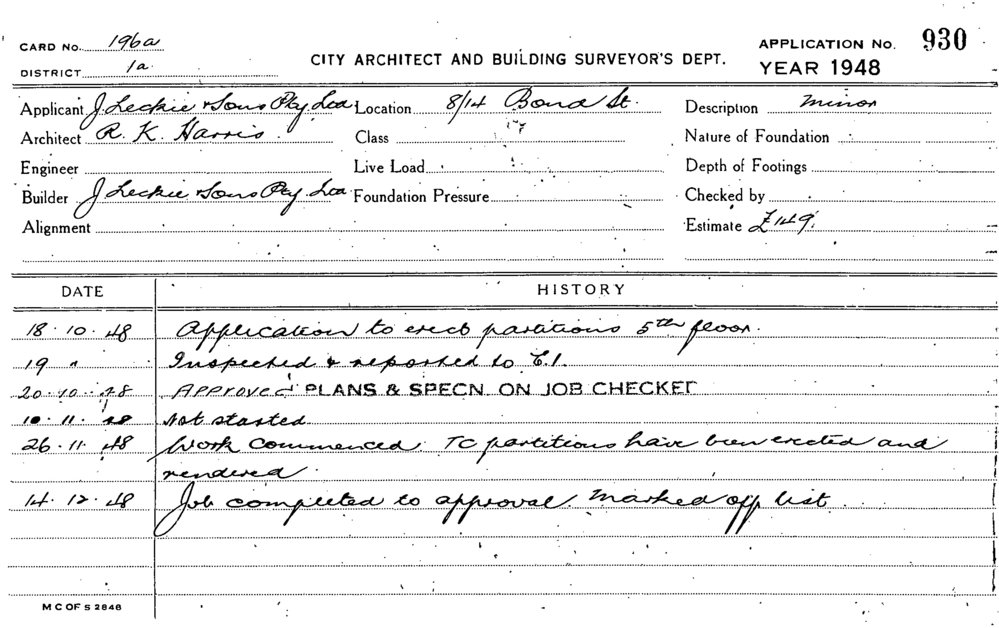 CARD No. 196a
CITY ARCHITECT AND BUILDING SURVEYOR'S DEPT.
APPLICATION No. 930
DISTRICT 1a
YEAR 1948
Applicant J Leckie & Sons Pty Ltd Location 8/14 Bond St. Description minor
Architect R. K. Harris Class Nature of Foundation
Engineer Live Load Depth of Footings
Builder J Leckie & Sons Pty Ltd Foundation Pressure Checked by
Alignment Estimate £149
DATE HISTORY
18.10.48 Application to erect partitions 5th floor.
19 " Inspected & reported to C.I.
20.10.48 APPROVED PLANS & SPECN. ON JOB CHECKED
10.11.48 Not started
26.11.48 Work commenced. TC partitions have been erected and
rendered.
14.12.48 Job completed to approval. Marked off list.
M C OF S 2848